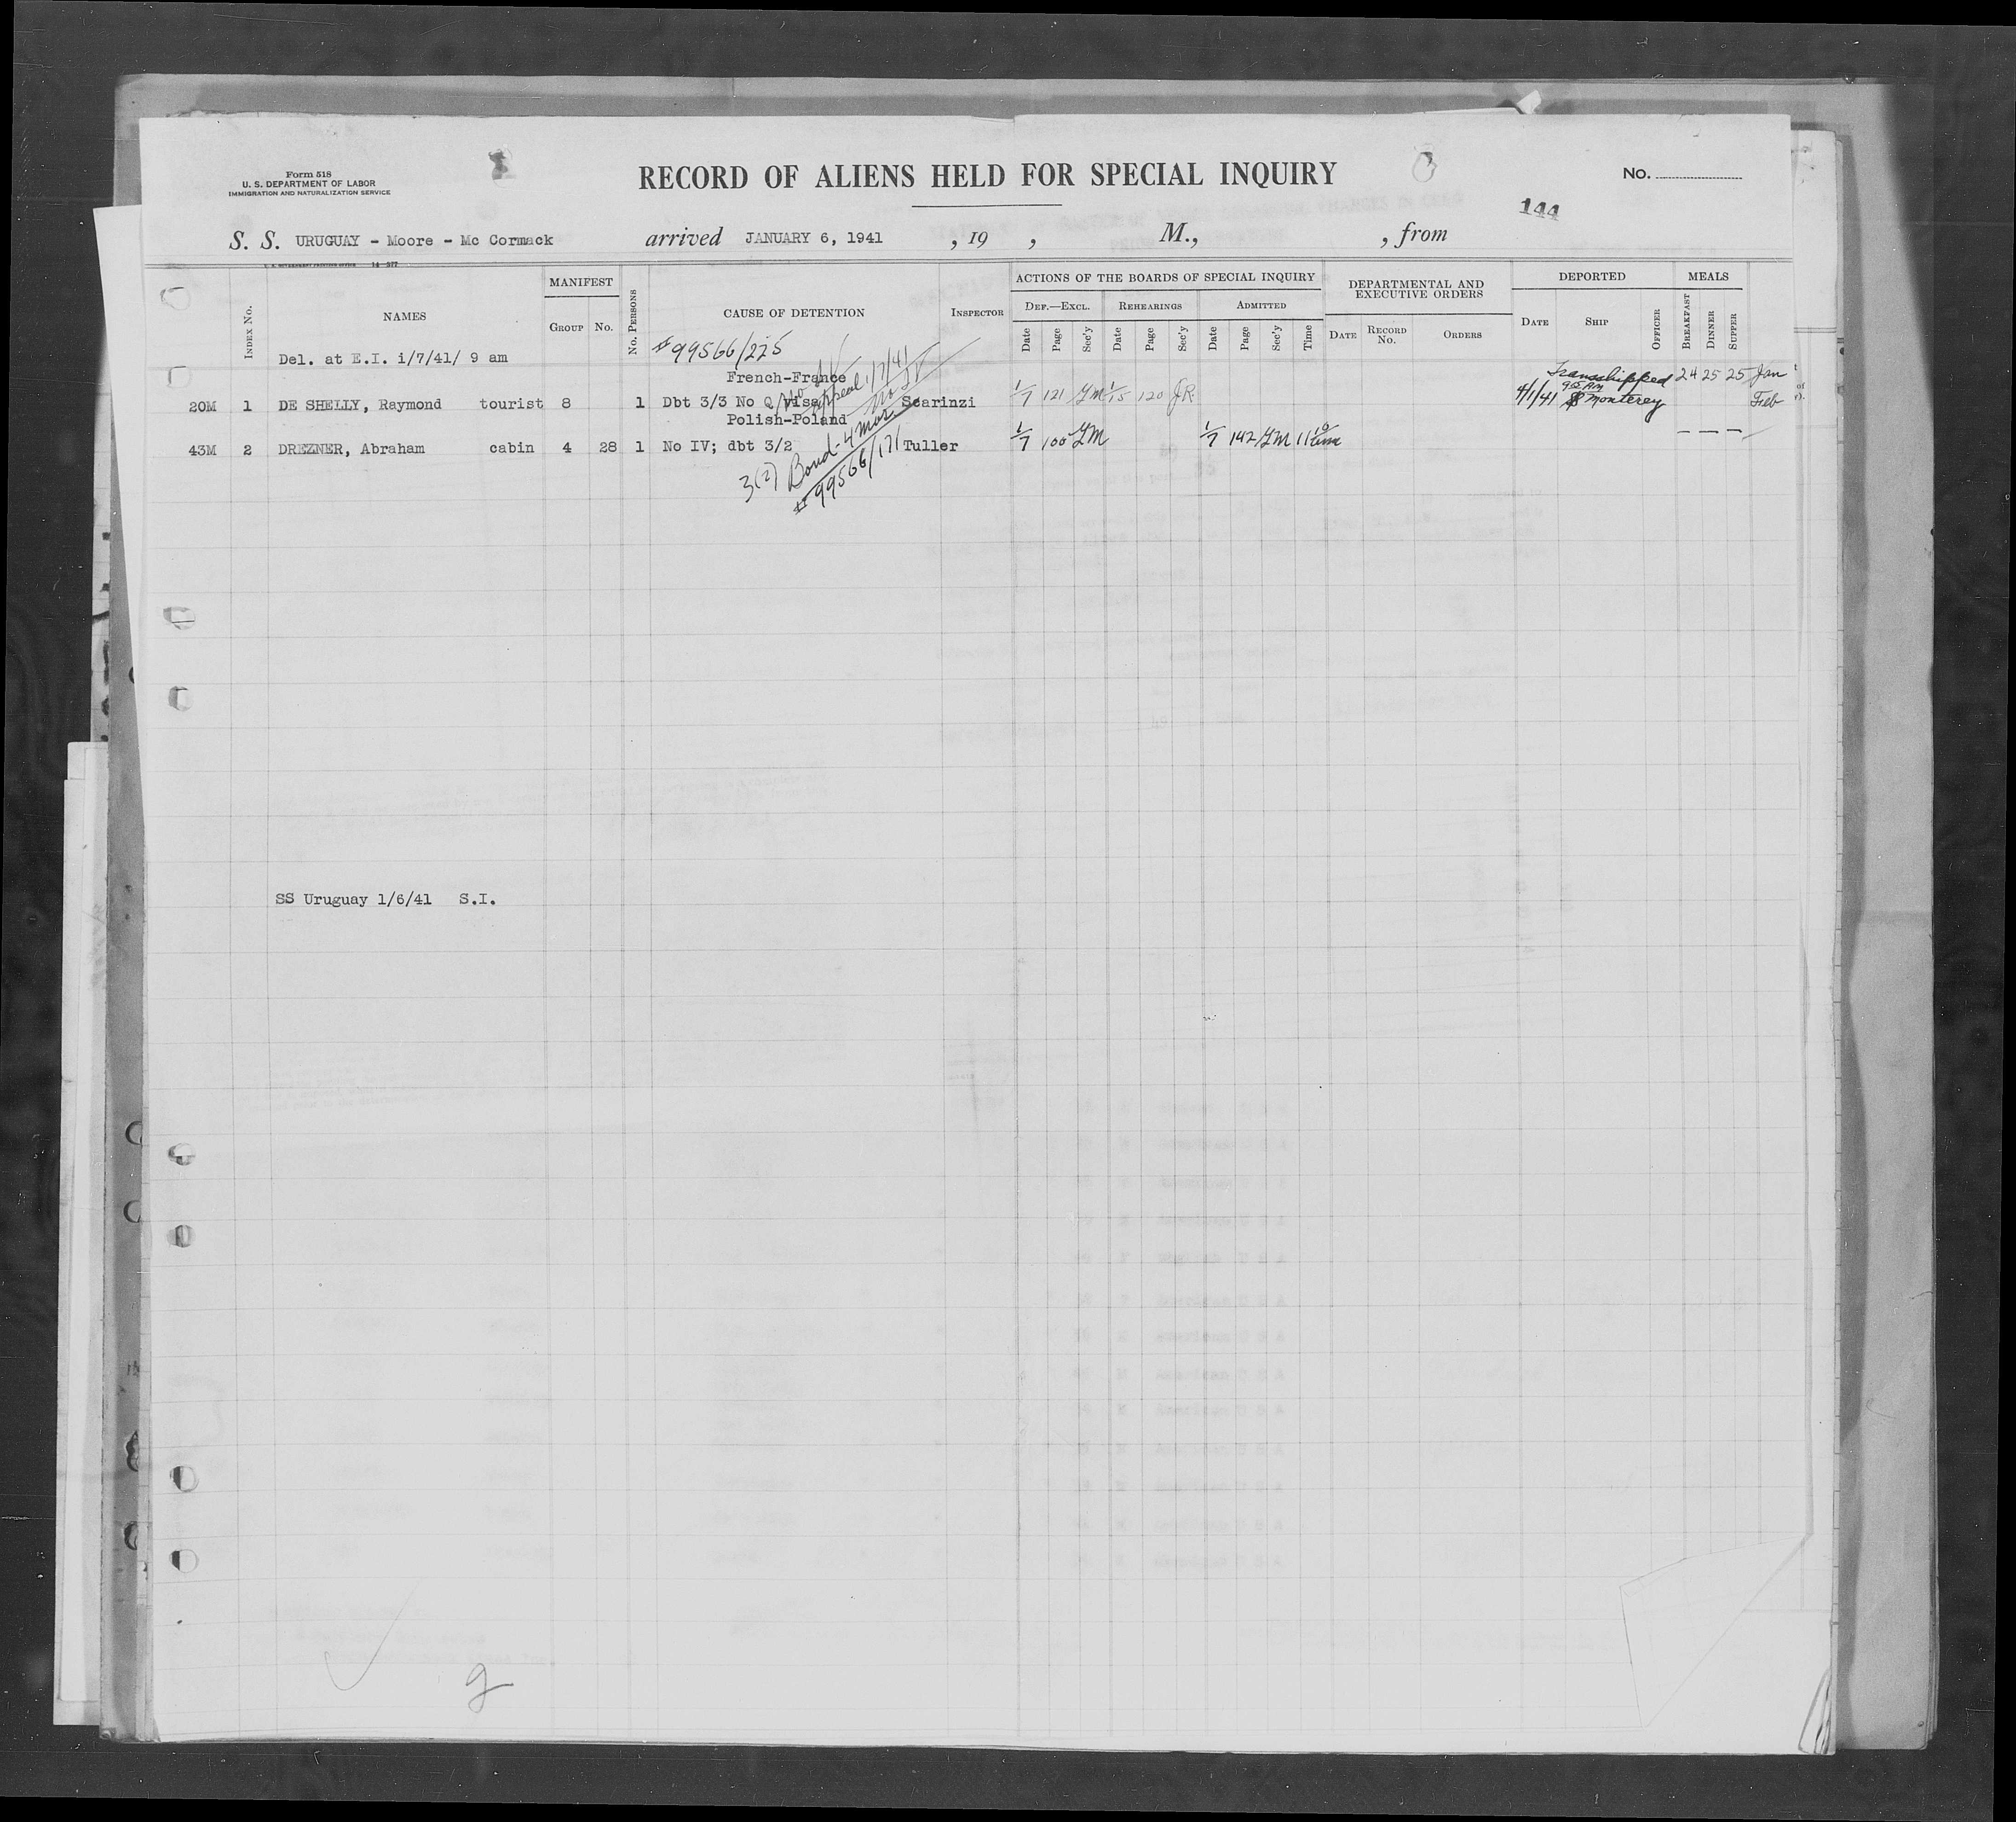 Form 518
U. S. DEPARTMENT OF LABOR
IMMIGRATION AND NATURALIZATION SERVICE
RECORD OF ALIENS HELD FOR SPECIAL INQUIRY
No.
144
S. S. URUGUAY - Moore - Mc Cormack arrived JANUARY 6, 1941 , 19 , M., , from
INDEX No. NAMES MANIFEST GROUP No. No. PERSONS CAUSE OF DETENTION INSPECTOR
ACTIONS OF THE BOARDS OF SPECIAL INQUIRY
DEF.—EXCL. REHEARINGS ADMITTED
Date Page Sec'y Date Page Sec'y Date Page Sec'y Time
DEPARTMENTAL AND EXECUTIVE ORDERS
DATE RECORD No. ORDERS
DEPORTED
DATE SHIP OFFICER
MEALS
BREAKFAST DINNER SUPPER
Del. at E.I. i/7/41/ 9 am #99566/225
French-France No appeal 1/7/41 Transshipped 24 25 25 Jan
20M 1 DE SHELLY, Raymond tourist 8 1 Dbt 3/3 No Q/Visa Scarinzi 1/7 121 1/15 120 JR 4/1/41 Monterey Feb
Polish-Poland No IV
43M 2 DREZNER, Abraham cabin 4 28 1 No IV; dbt 3/2 Tuller 1/7 100 1/7 142 — — —
3(2) Bond-4 mos.
#99566/171
SS Uruguay 1/6/41 S.I.